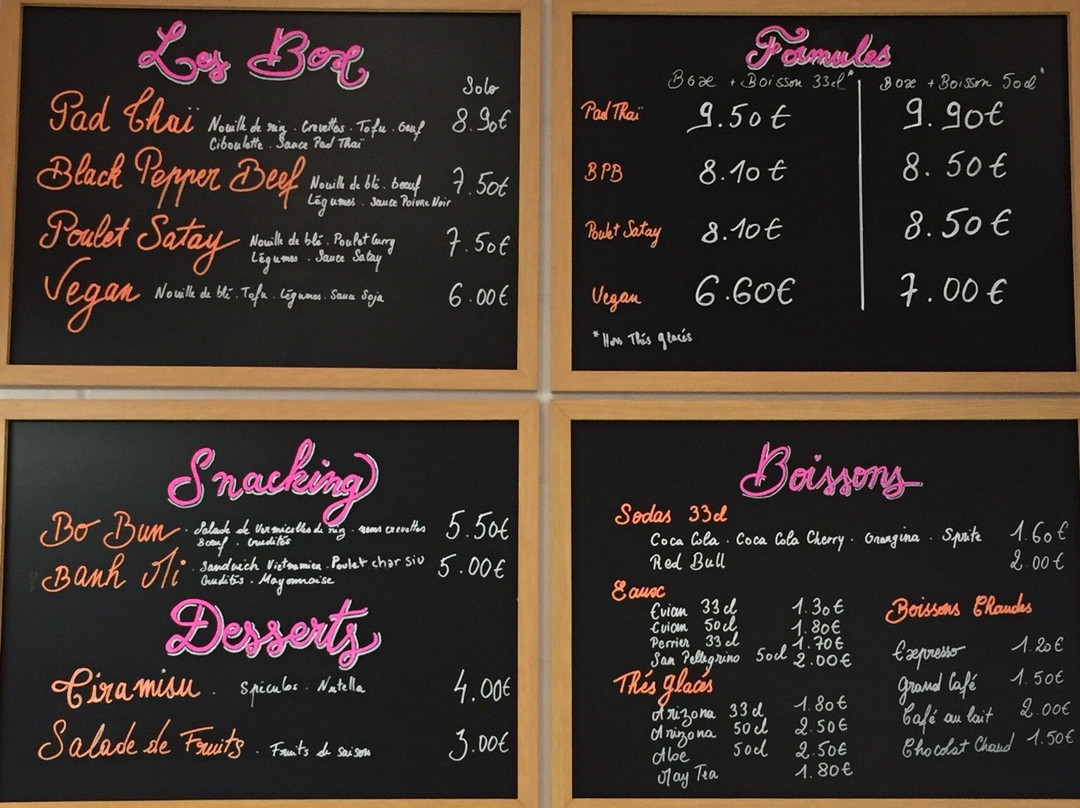 Les Box
Solo
Pad Thaï Nouille de riz . Crevettes . Tofu . Oeuf 8.90€
Ciboulette . Sauce Pad Thaï
Black Pepper Beef Nouille de blé . boeuf 7.50€
Légumes . Sauce Poivre Noir
Poulet Satay Nouille de blé . Poulet Curry 7.50€
Légumes . Sauce Satay
Vegan Nouille de blé . Tofu . Légumes . Sauce Soja 6.00€
Formules
Box + Boisson 33cl* Box + Boisson 50cl*
Pad Thaï 9.50€ 9.90€
BPB 8.10€ 8.50€
Poulet Satay 8.10€ 8.50€
Vegan 6.60€ 7.00€
*Hors Thés glacés
Snacking
Bo Bun . Salade de Vermicelles de riz . nems crevettes 5.50€
Boeuf . Crudités
Banh Mi . Sandwich Vietnamien . Poulet char siu 5.00€
Crudités . Mayonnaise
Desserts
Tiramisu . Spéculos . Nutella 4.00€
Salade de Fruits . Fruits de saison 3.00€
Boissons
Sodas 33cl
Coca Cola . Coca Cola Cherry . Orangina . Sprite 1.60€
Red Bull 2.00€
Eaux
Evian 33cl 1.30€
Evian 50cl 1.80€
Perrier 33cl 1.70€
San Pellegrino 50cl 2.00€
Thés glacés
Arizona 33cl 1.80€
Arizona 50cl 2.50€
Aloe 50cl 2.50€
May Tea 1.80€
Boissons Chaudes
Expresso 1.20€
Grand Café 1.50€
Café au lait 2.00€
Chocolat Chaud 1.50€